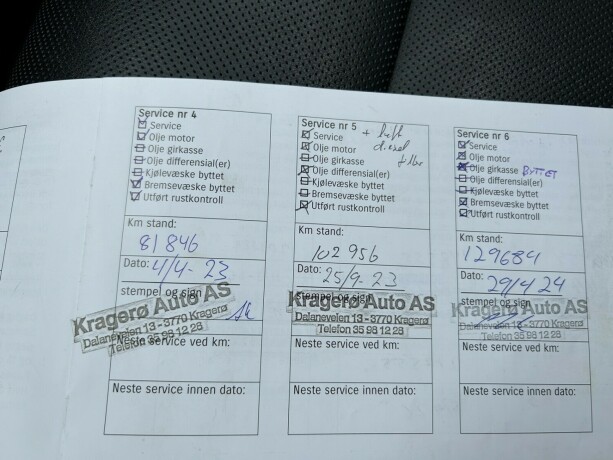 Service nr 4
Service
Olje motor
Olje girkasse
Olje differensial(er)
Kjølevæske byttet
Bremsevæske byttet
Utført rustkontroll
Km stand:
81846
Dato: 4/4-23
stempel og sign
Kragerø Auto AS
Dalaneveien 13 - 3770 Kragerø
Telefon 35 98 12 28
Neste service ved km:
Neste service innen dato:
Service nr 5
Service + luft
Olje motor diesel
Olje girkasse filter
Olje differensial(er)
Kjølevæske byttet
Bremsevæske byttet
Utført rustkontroll
Km stand:
102956
Dato: 25/9-23
stempel og sign
Kragerø Auto AS
Dalaneveien 13 - 3770 Kragerø
Telefon 35 98 12 28
Neste service ved km:
Neste service innen dato:
Service nr 6
Service
Olje motor
Olje girkasse BYTTET
Olje differensial(er)
Kjølevæske byttet
Bremsevæske byttet
Utført rustkontroll
Km stand:
129684
Dato: 29/4 24
stempel og sign
Kragerø Auto AS
Dalaneveien 13 - 3770 Kragerø
Telefon 35 98 12 28
Neste service ved km:
Neste service innen dato: